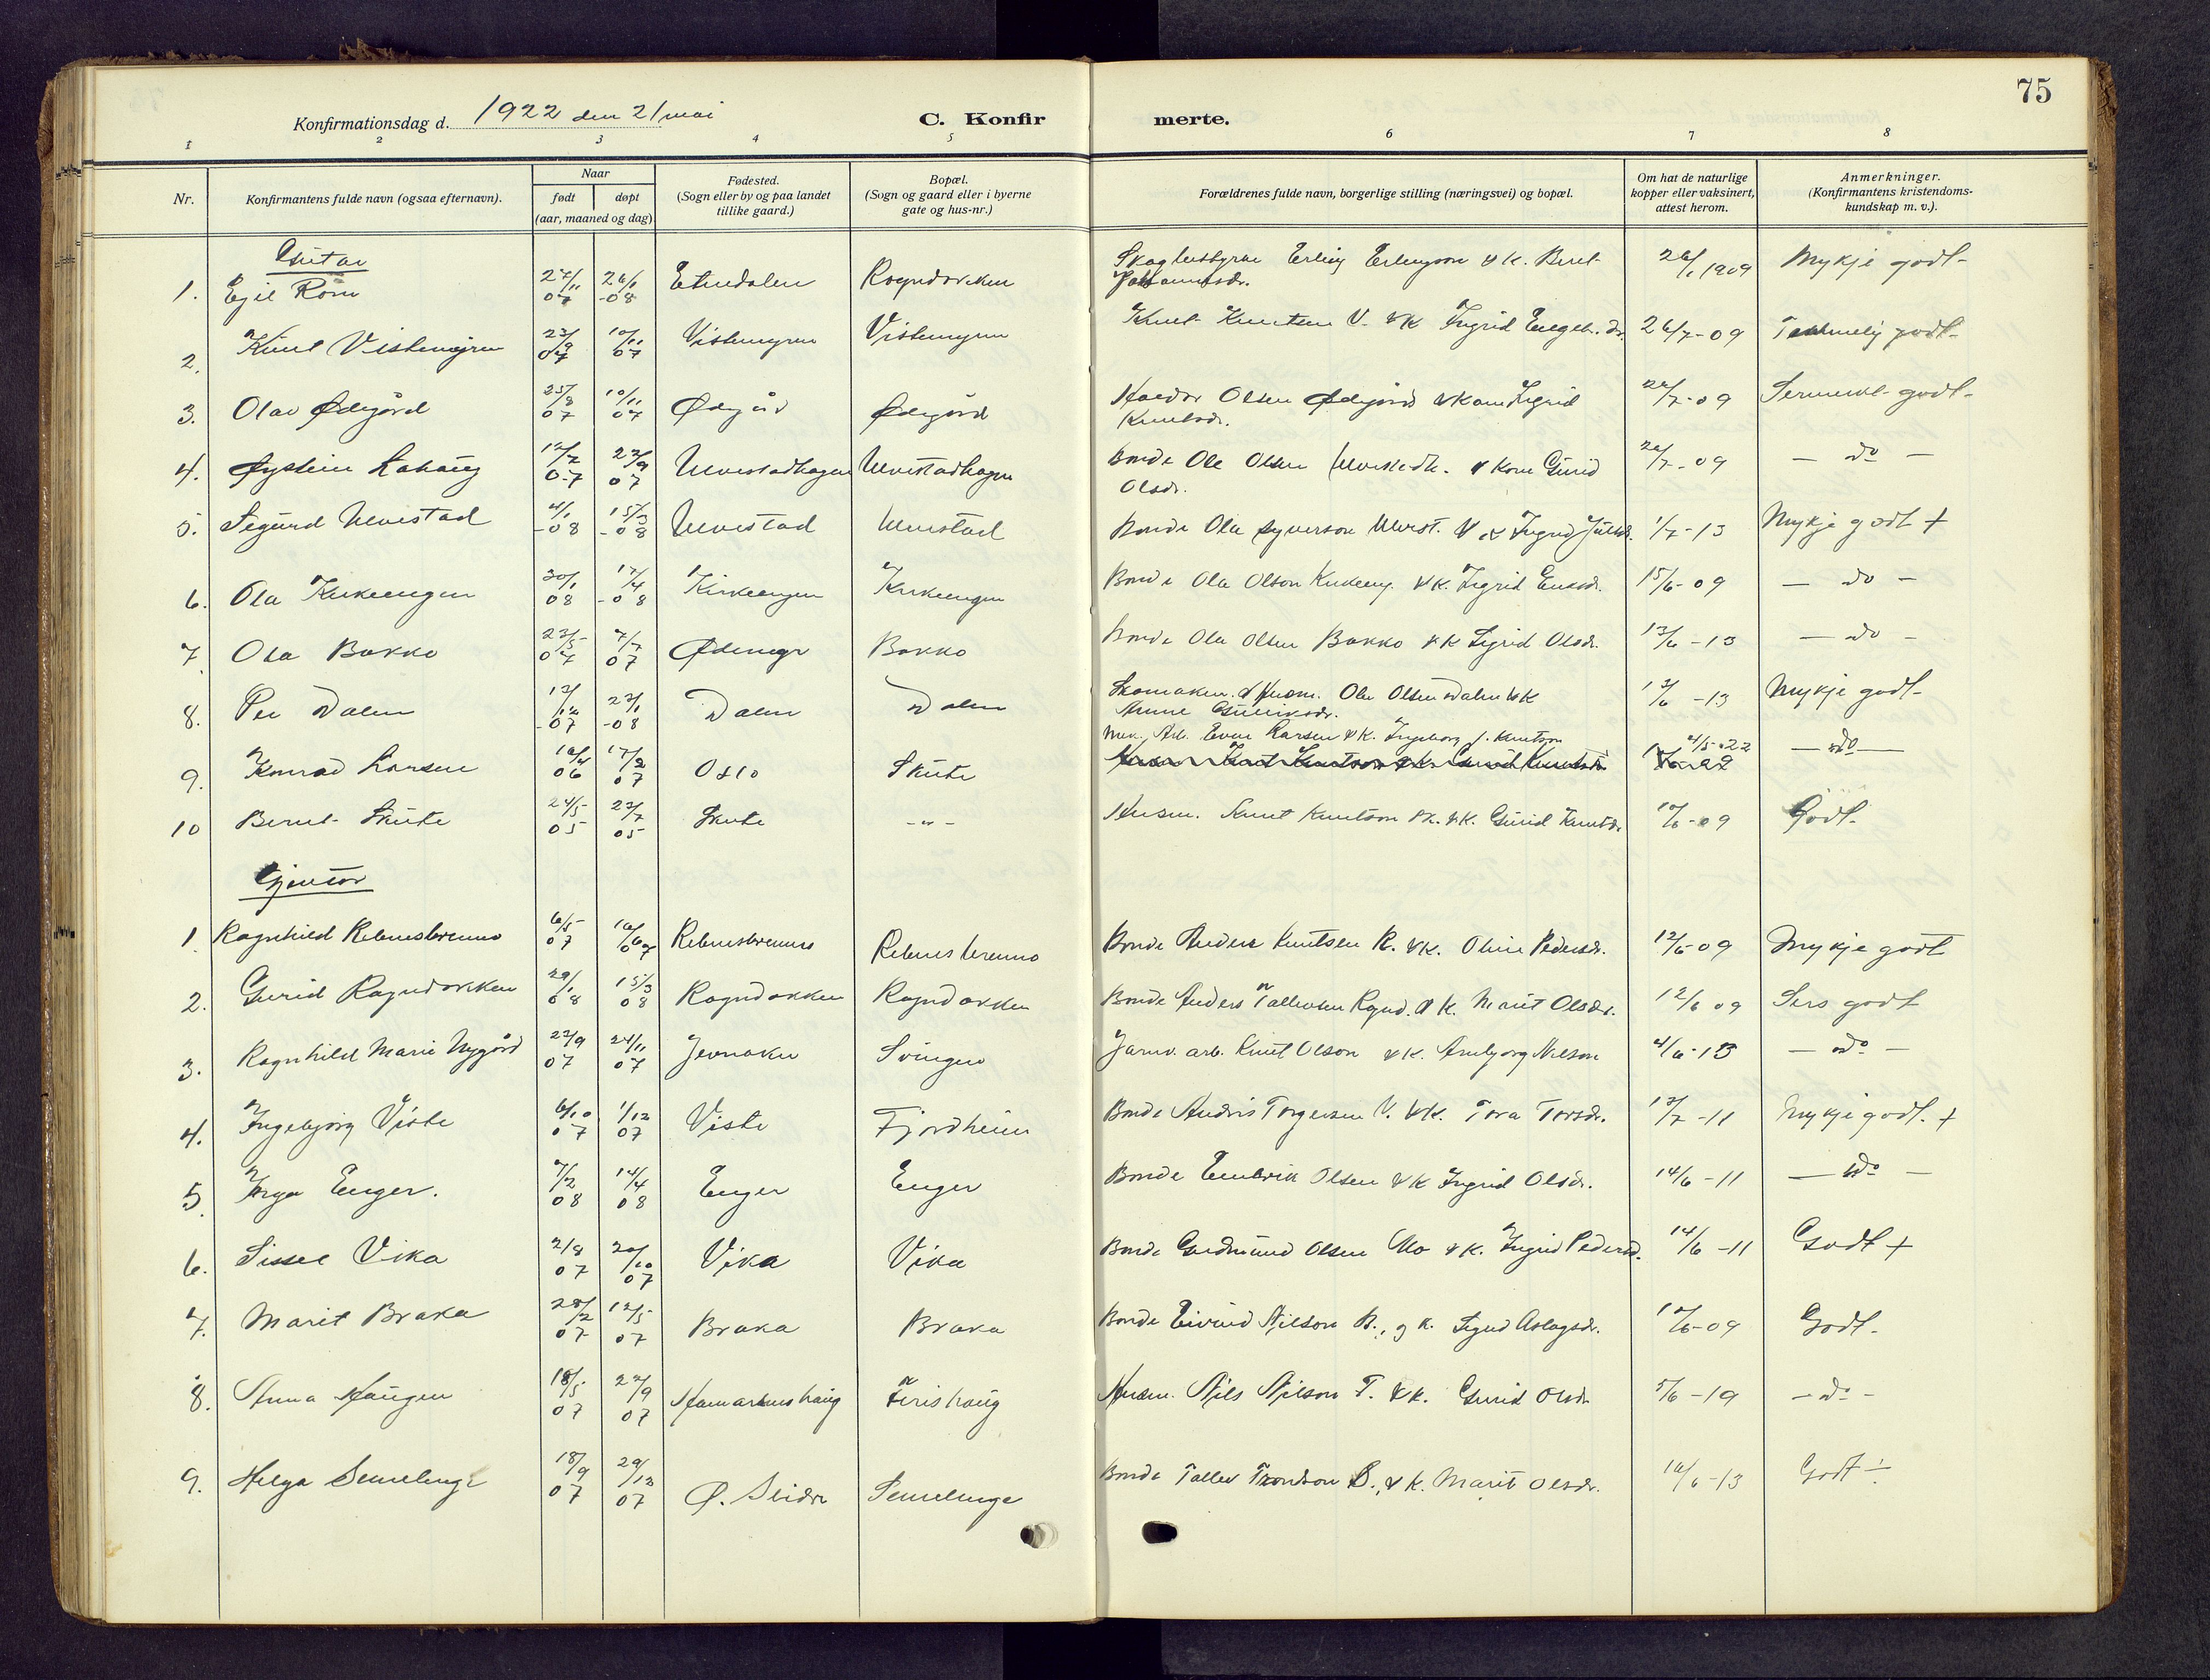 75
Konfirmationsdag d. 1922 den 21 mai
C. Konfirmerte.
1 2 3 4 5 6 7 8
Nr.
Konfirmantens fulde navn (ogsaa efternavn).
Naar
født døpt
(aar, maaned og dag)
Fødested.
(Sogn eller by og paa landet
tillike gaard.)
Bopæl.
(Sogn og gaard eller i byerne
gate og hus-nr.)
Forældrenes fulde navn, borgerlige stilling (næringsvei) og bopæl.
Om hat de naturlige
kopper eller vaksinert,
attest herom.
Anmerkninger.
(Konfirmantens kristendoms-
kundskap m. v.).
Gutar
1. Egil Rom 27/11 07 26/1 -08 Etnedalen Rogndokken Erling Erlingson & K. Berit 26/1 1909 Mykje godt
2. Knut Vistemyrn 23/9 07 10/11 07 Vistemyrn Vistemyrn Knut Knutsen V. & K Ingrid 26/7-09 godt
3. Olav Ødegård 25/8 07 10/11 07 Ødegård Ødegård Olsen Ødegård & Kone Sigrid
Knutsdr. 26/7-09 godt
4. Øystein 12/7 07 22/9 07 Ulvestadhagen Ulvestadhagen Bonde Ole Olsen & Kone Gurid
Olsdr. 26/7-09 — do —
5. Sigurd Ulvestad 4/1 -08 15/3 -08 Ulvestad Ulvestad Bonde Ola Syverson Ulvest. & K Ingrid 1/7-13 Mykje godt +
6. Ola Kirkeengen 30/1 08 17/4 -08 Kirkeengen Kirkeengen Bonde Ola Olson Kirkeeng. & K. Ingrid 15/6-09 — do —
7. Ola Bakko 23/5 07 7/7 07 Bakko Bonde Ola Olsen Bakko & K Sigrid Olsdr. 13/6-13 — do —
8. Per Dalen 12/12 -07 23/1 -08 Dalen Dalen Skomaker & Husm. Ole Olsen Dalen & K
Anne Gulliksdr. 13/6-13 Mykje godt
9. Konrad Larsen 06 17/2 07 Oslo Skute Mek. Arb. Even Larsen & K. Ingeborg f. Knutson 4/5-22 — do —
10 Berit Skute 24/5 05 23/7 05 Skute - " - Husm. Knut Knutson & K. Gurid Knutsdr. 10/6-09 Godt
Gjentor
1. Ragnhild Rebnesbrenno 6/5 07 07 Rebnesbrenno Rebnesbrenno Bonde Anders Knutsen R. & K. Oline Pedersdr. 12/6-09 Mykje godt
2. Gurid Rogndokken 29/1 08 15/3 08 Rogndokken Rogndokken Bonde Anders Tallevsen Rognd. & K. Marit Olsdr. 12/6 09 Sers godt
3. Ragnhild Marie Nygård 22/9 07 24/11 07 Jevnaker Svingen Jarnv. arb. Knut Olson & K. Ambjørg Nilson 4/6-13 — do —
4. Ingebjørg Viste 6/10 07 1/12 07 Viste Fjordheim Bonde Andris Torgersen V. & K. Tora Torsdr. 13/7-11 Mykje godt. +
5. Inga Enger. 7/2 08 14/4 08 Enger Enger Bonde Embrik Olsen & K Ingrid Olsdr. 14/6-11 — do —
6. Sissel Vika 2/8 07 20/10 07 Vika Vika Bonde Gudmund Olsen Mo & K. Ingrid Pedersd. 14/6-11 Godt +
7. Marit Braka 28/2 07 12/5 07 Braka Braka Bonde Eivind Nilson B., og K. Sigrid Aslagsdr. 12/6-09 Godt
8. Anna Haugen 18/5 07 22/9 07 haug haug Husm. Nils Nilson T. & K. Gurid Olsdr 5/6-19 — do —
9. Helga Semelenge 18/9 07 29/12 07 Ø. Slidre Semelenge Bonde Tallev Trondson S., & K. Marit Olsdr. 16/6-13 Godt ÷